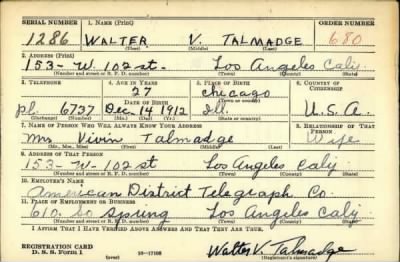 SERIAL NUMBER 1. NAME (Print) ORDER NUMBER
1286 WALTER V. TALMADGE 680
(First) (Middle) (Last)
2. ADDRESS (Print)
153- W. 102 st. Los Angeles Calif.
(Number and street or R. F. D. number) (Town) (County) (State)
3. TELEPHONE 4. AGE IN YEARS 5. PLACE OF BIRTH 6. COUNTRY OF CITIZENSHIP
27 Chicago
DATE OF BIRTH (Town or county)
pl. 6737 Dec. 14 1912 Ill. U.S.A.
(Exchange) (Number) (Mo.) (Day) (Yr.) (State or country)
7. NAME OF PERSON WHO WILL ALWAYS KNOW YOUR ADDRESS 8. RELATIONSHIP OF THAT PERSON
Mrs Talmadge Wife
(Mr., Mrs., Miss) (First) (Middle) (Last)
9. ADDRESS OF THAT PERSON
153- W- 102 st Los Angeles Calif
(Number and street or R. F. D. number) (Town) (County) (State)
10. EMPLOYER'S NAME
American District Telegraph Co.
11. PLACE OF EMPLOYMENT OR BUSINESS
610. So Spring Los Angeles Calif
(Number and street or R. F. D. number) (Town) (County) (State)
I AFFIRM THAT I HAVE VERIFIED ABOVE ANSWERS AND THAT THEY ARE TRUE.
REGISTRATION CARD
D. S. S. FORM 1 (over) Walter V. Talmadge
(Registrant's signature)